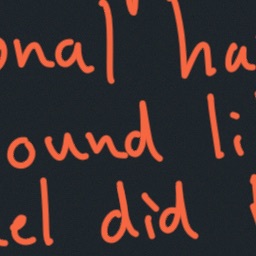 onal ha
ound li
el did